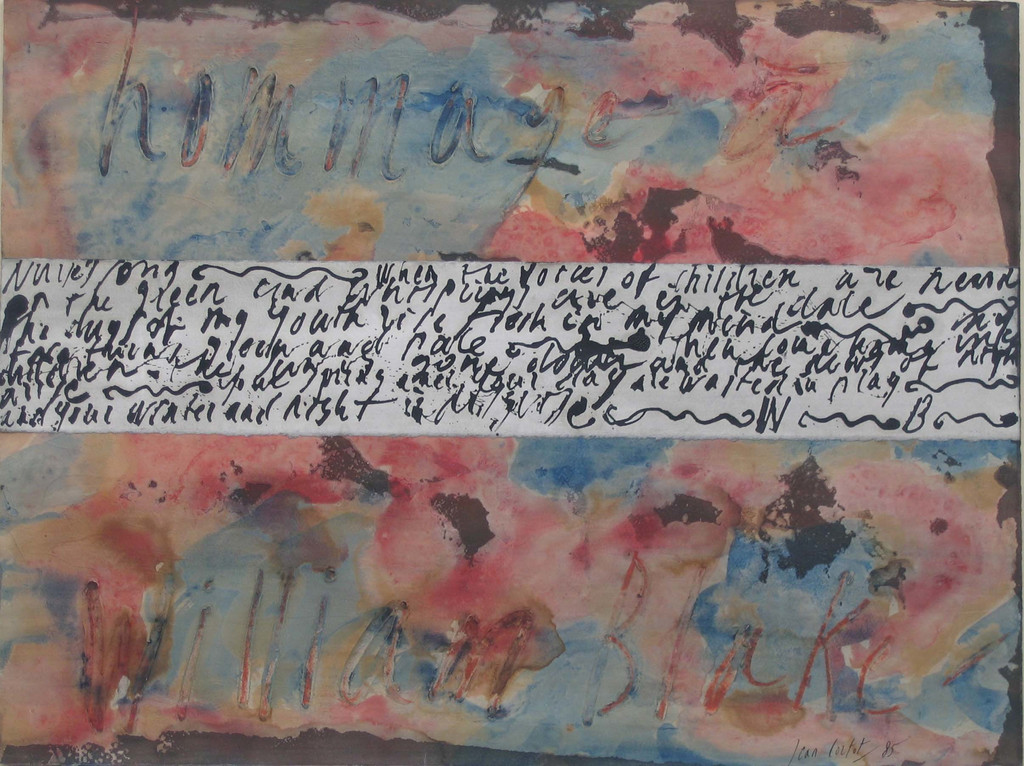 hommage à
Nurse's Song When the voices of children are heard
on the green and whisprings are in the dale
The days of my youth rise fresh in my mind my
face turns green and pale Then come home my
children the sun is gone down and the dews of night
arise your spring and your day are wasted in play
and your winter and night in disguise W B
William Blake
Jean Cortot 85